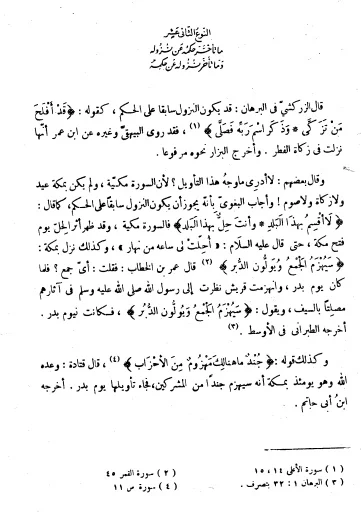 النوع الثانى عشر
ما تأخر حكمه عن نزوله
وما تأخر نزوله عن حكمه
قال الزركشيّ فى البرهان : قد يكون النزول سابقا على الحكم ، كقوله : ﴿ قَدْ أَفْلَحَ
مَنْ تَزَكَّى * وَذَكَرَ اسْمَ رَبِّهِ فَصَلَّى ﴾ (١) ، فقد روى البيهقيّ وغيره عن ابن عمر أنّها
نزلت فى زكاة الفطر . وأخرج البزار نحوه مرفوعا .
وقال بعضهم : لا أدرى ما وجهُ هذا التأويل ؟ لأن السورة مكيّة ، ولم يكن بمكة عيد
ولا زكاة ولا صوم ! وأجاب البغوىّ بأنه يجوز أن يكون النزول سابقاً على الحكم ، كما قال :
﴿ لاَ أُقْسِمُ بِهَذَا الْبَلَدِ * وأنتَ حِلٌّ بِهَذَا الْبَلَدِ ﴾ فالسورة مكية ، وقد ظهر أثر الحِلّ يوم
فتح مكة ، حتى قال عليه السلام : « أُحِلّتْ لى ساعه من نهار » ، وكذلك نزل بمكة :
﴿ سَيُهْزَمُ الْجَمْعُ وَيُوَلُّونَ الدُّبُرَ ﴾ (٢) قال عمر بن الخطاب : فقلت : أىّ جمع ؟ فلما
كان يوم بدر ، وانهزمت قريش نظرت إلى رسول الله صلى الله عليه وسلم فى آثارهم
مصلِتاً بالسيف ، ويقول : ﴿ سَيُهْزَمُ الْجَمْعُ وَيُوَلُّونَ الدُّبُرَ ﴾ ، فكانت ليوم بدر .
أخرجه الطبرانى فى الأوسط . (٣)
وكذلك قوله : ﴿ جُنْدٌ مَا هُنَالِكَ مَهْزُومٌ مِنَ الأَحْزَابِ ﴾ (٤) ، قال قتادة : وعده
الله وهو يومئذ بمكة أنه سيهزم جنداً من المشركين، فجاء تأويلها يوم بدر . أخرجه
ابنُ أبى حاتم .
(١) سورة الأعلى ١٤، ١٥ (٢) سورة القمر ٤٥
(٣) البرهان ١ : ٣٢ بتصرف . (٤) سورة ص ١١